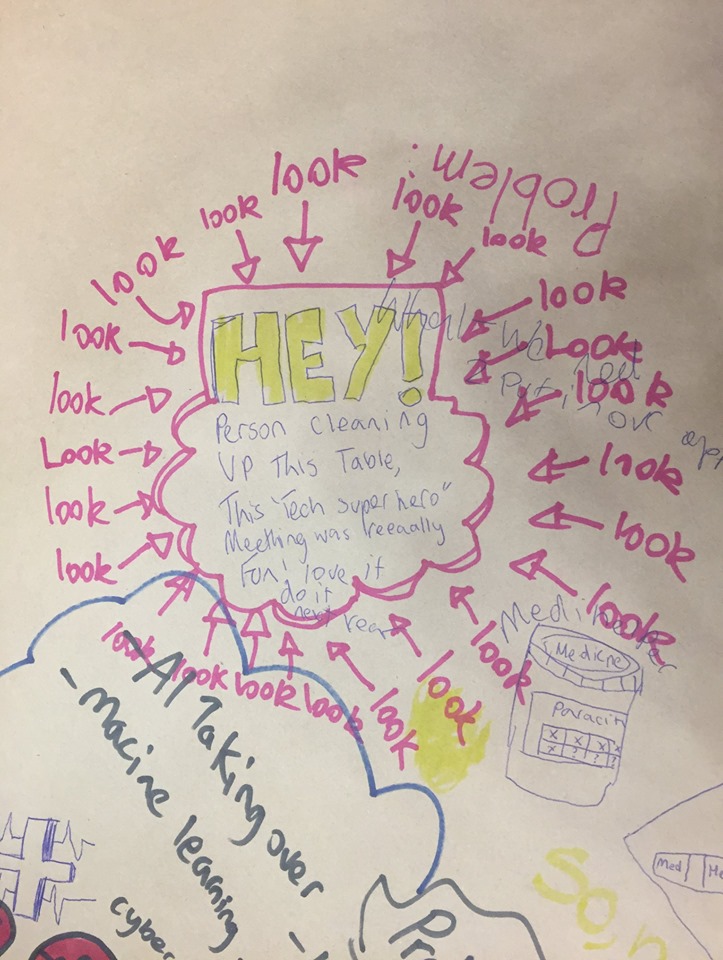 Problem:
look
look
look
look
look
look
look
look
look
Look
look
look
look
Look
look
look
look
look
look
HEY!
Person cleaning
up this Table,
This "Tech super hero"
Meething was reeaally
Fun! love it
do it
next year
What we need
look
look
look
look
look
look
look
look
Medi
Medicne
Paracin
x x x x
x ? ? ?
- AI Taking over
- Macine learning
cyber
Med
So,n